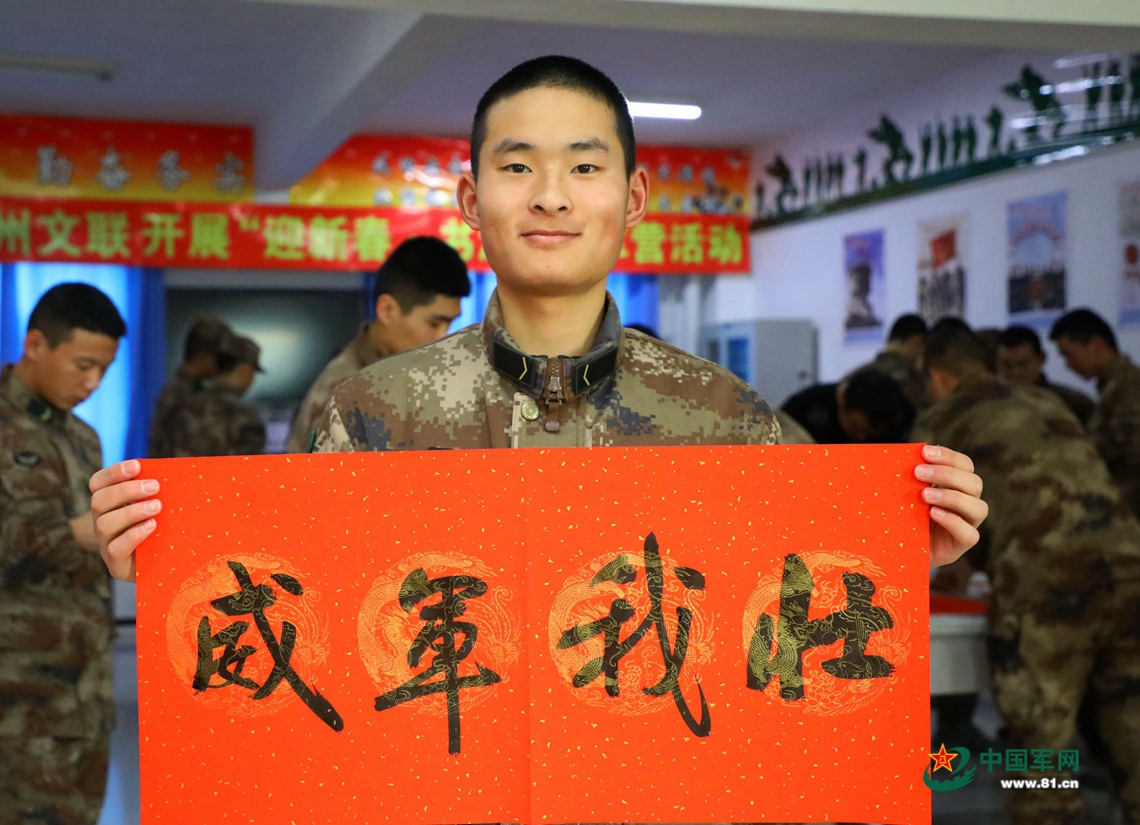 勤务务实
州文联开展“迎新春 书 营活动
威军我壮
中国军网
www.81.cn